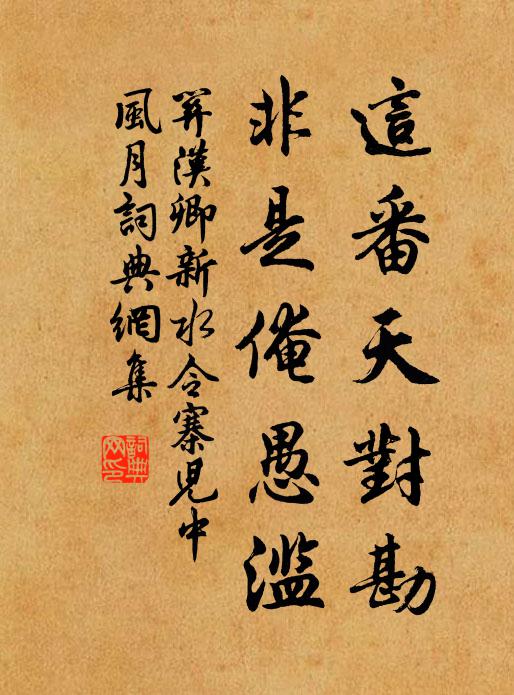 這番天對勘
非是俺愚濫
關漢卿新水令寨兒中
風月詞典網集
詞典
网印